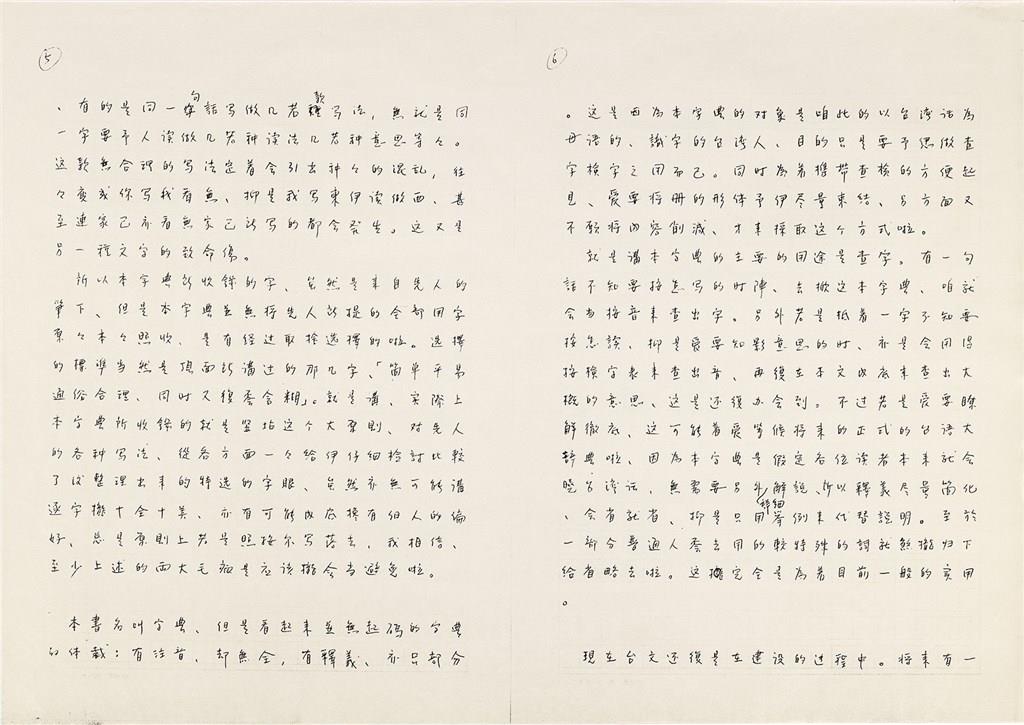 5
、有的是同一句話写做几若款写法,無就是同
一字要予人读做几若种读法几若种意思等々。
这款無合理的写法定着会引出种々的混乱,往
々变或你写我看無、抑是我写東伊读做西、甚
至連家己亦看無家己所写的都会発生。这又是
另一種文字的致命傷。
所以本字典所收錄的字、虽然是来自先人的
筆下、但是本字典並無将先人所提的全部用字
原々本々照收、是有经过取捨选擇的啦。选擇
的標準当然是頂面所講过的那几字、「簡单平易
通俗合理、同时又復袂含糊」。就是講、实際上
本字典所收錄的就是竪站这个大原則、对先人
的各种写法、從各方面一々给伊仔細検討比較
了後整理出来的特选的字眼、虽然亦無可能講
逐字攏十全十美、亦有可能或底攏有個人的偏
好、总是原則上若是照按尔写落去,我相信、
至少上述的両大毛病是应该攏会当避免啦。
本書名叫字典、但是看起来並無起码的字典
的体裁:有注音、却無全,有釋義、亦只部分
6
。这是因为本字典的对象是咱此的以台湾话为
母语的、識字的台湾人、目的只是要予偲做查
字検字之用而己。同时为着携带查検的方便起
見、爱要将册的形体予伊尽量束结、另方面又
不願将内容削減、才来採取这个方式啦。
就是講本字典的主要的用途是查字。有一句
話不知要按怎写的时陣、去掀这本字典、咱就
会当按音来查出字。另外若是抵着一字不知要
按怎读、抑是爱要知影意思的时、亦是会用得
按検字表来查出音、再復在本文或底来查出大
概的意思、这是还復办会到。不过若是爱要瞭
解徹底、这可能着爱等候将来的正式的台语大
辞典啦、因为本字典是假定各位读者本来就会
晓台湾话,無需要另外詳細解說、所以釋義尽量簡化
、会省就省、抑是只用举例来代替説明。至於
一部分普通人袂去用的較特殊的詞就煞攏归下
给省略去啦。这攏完全是为着目前一般的实用
。
現在台文还復是在建设的过程中。将来有一